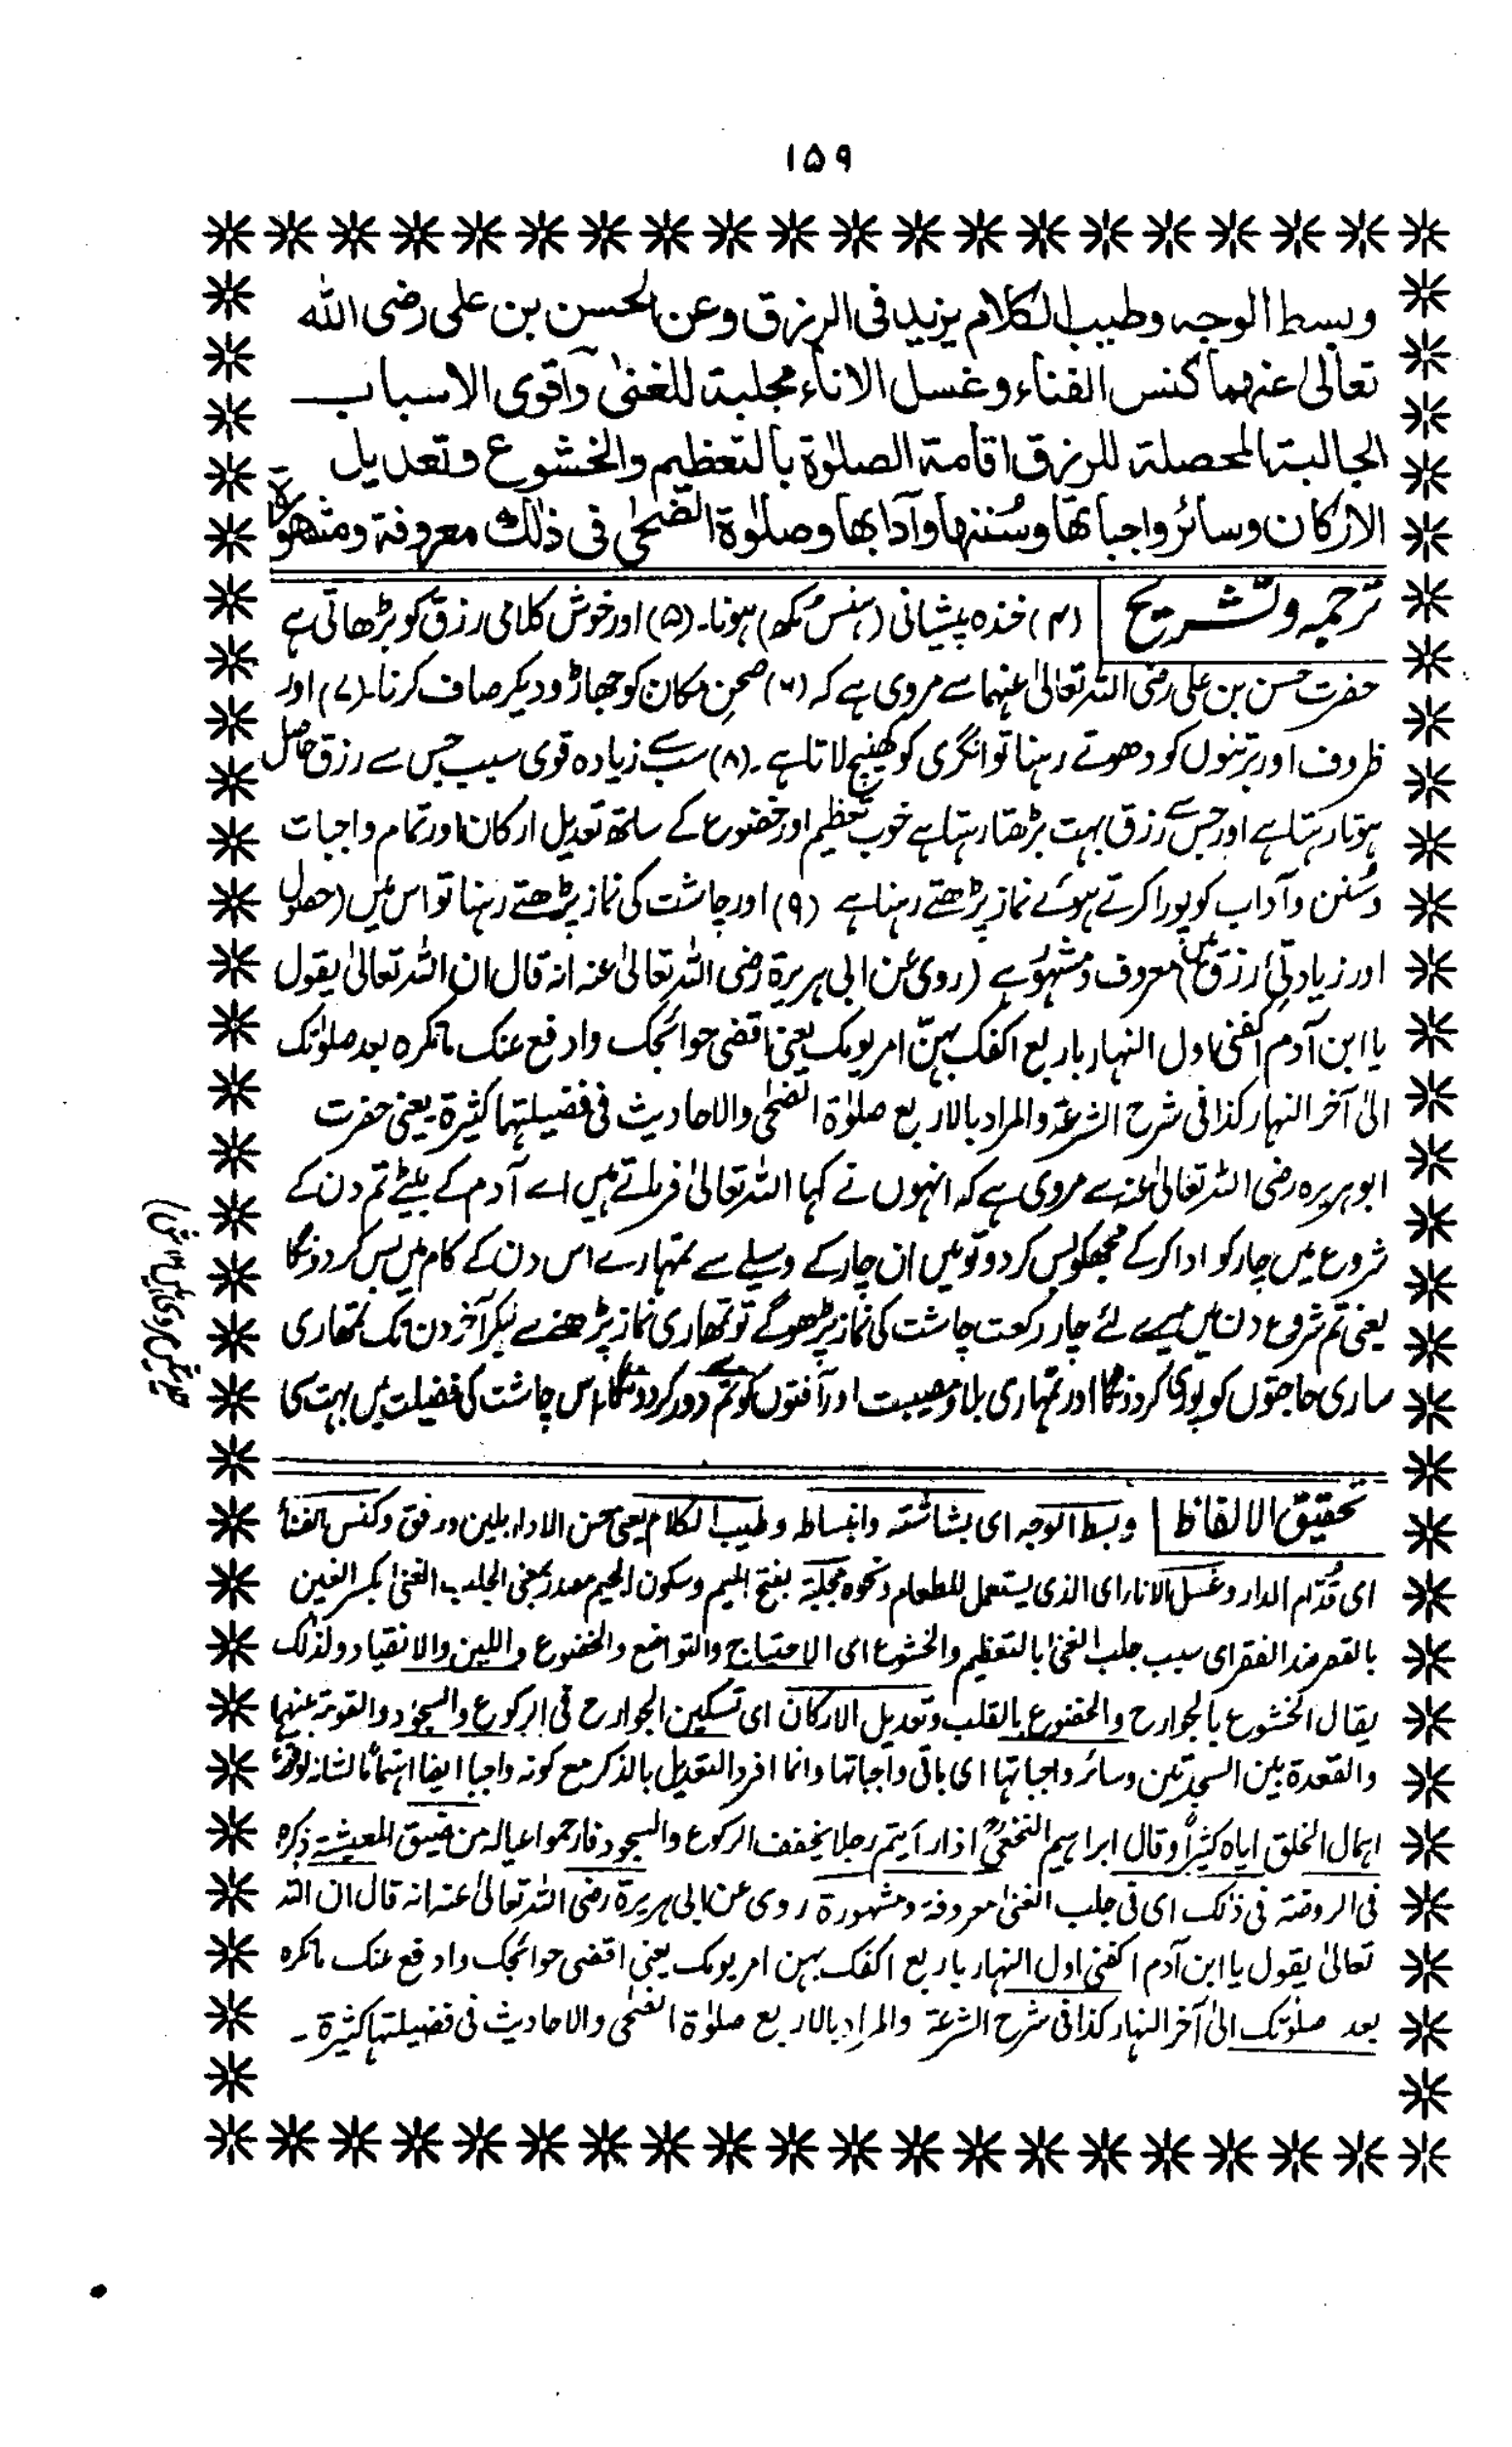 ۱۵۹
وبسط الوجه وطيب الكلام يزيد فى الرزق وعن الحسن بن على رضى الله
تعالىٰ عنهما كنس الفناء وغسل الاناء مجلبة للغنىٰ وآقوى الاسباب
الجالبة المحصلة للرزق اقامة الصلوٰة بالتعظيم والخشوع وتعديل
الاركان وسائر واجباتها وسُننها وآدابها وصلوٰة الضحىٰ فى ذٰلك معروفة ومشهورة
ترجمہ وتشریح (۴) خندہ پیشانی (ہنس مُکھ) ہونا۔ (۵) اور خوش کلامی رزق کو بڑھاتی ہے
حضرت حسن بن علی رضی اللہ تعالیٰ عنہما سے مروی ہے کہ (۶) صحنِ مکان کو جھاڑو دیکر صاف کرنا۔ (۷) اور
ظروف اور برتنوں کو دھوتے رہنا توانگری کو کھینچ لاتا ہے۔ (۸) سب سے زیادہ قوی سبب جس سے رزق حاصل
ہوتا رہتا ہے اور جس سے رزق بہت بڑھتا رہتا ہے خوب تعظیم اور خضوع کے ساتھ تعدیل ارکان اور تمام واجبات
وسُنن وآداب کو پورا کرتے ہوئے نماز پڑھتے رہنا ہے (۹) اور چاشت کی نماز پڑھتے رہنا تو اس میں (حصول
اور زیادتیٔ رزق میں) معروف ومشہور ہے (روی عن ابی ہریرة رضی اللہ تعالیٰ عنہ انہ قال ان اللہ تعالیٰ یقول
یا ابن آدم اکفنی اول النہار باربع اکفک بہنّ امر یومک یعنی اقضی حوائجک وادفع عنک ماتکرہ بعد صلوٰتک
الیٰ آخر النہار کذا فی شرح الشرعة والمراد بالاربع صلوٰة الضحیٰ والاحادیث فی فضیلتہا کثیرة یعنی حضرت
ابوہریرہ رضی اللہ تعالیٰ عنہ سے مروی ہے کہ انہوں نے کہا اللہ تعالیٰ فرماتے ہیں اے آدم کے بیٹے تم دن کے
شروع میں چار کو ادا کرکے مجھکو بس کردو تو میں ان چار کے وسیلے سے تمہارے اس دن کے کام میں بس کردونگا
یعنی تم شروع دن میں میرے لئے چار رکعت چاشت کی نماز پڑھوگے تو تمھاری نماز پڑھنے سے لیکر آخر دن تک تمھاری
ساری حاجتوں کو پوری کردونگا اور تمہاری بلا ومصیبت اور آفتوں کو تم سے دور کردونگا، اس چاشت کی فضیلت میں بہت کی
حدیثیں مروی ہیں
تحقیق الالفاظ وبسط الوجہ ای بشاشتہ وانبساطہ وطیب الکلام یعنی حسن الاداء بلین ورفق وکنس الفناء
ای قُدّام الدار وغسل الاناء ای الذی یستعمل للطعام ونحوہ مجلبة بفتح المیم وسکون الجیم مصدر بمعنی الجلب الغنیٰ بکسر الغین
بالقصر ضد الفقر ای سبب جلب الغنیٰ بالتعظیم والخشوع ای الاحتیاج والتواضع والخضوع واللین والانقیاد ولذٰلک
یقال الخشوع بالجوارح والخضوع بالقلب وتعدیل الارکان ای تسکین الجوارح فی الرکوع والسجود والقومة بینہما
والقعدة بین السجدتین وسائر واجباتہا ای باقی واجباتہا وانما افرد التعدیل بالذکر مع کونہ واجبا ایضا اہتمامًا لشانہ
اہمال الخلق ایاہ کثیرًا وقال ابراہیم النخعیؒ اذا رأیتم رجلا یخفف الرکوع والسجود فارحموا عیالہ من ضیق المعیشة ذکرہ
فی الروضة فی ذٰلک ای فی جلب الغنیٰ معروفة ومشہورة روی عن ابی ہریرة رضی اللہ تعالیٰ عنہ انہ قال ان اللہ
تعالیٰ یقول یا ابن آدم اکفنی اول النہار باربع اکفک بہن امر یومک یعنی اقضی حوائجک وادفع عنک ماتکرہ
بعد صلوٰتک الیٰ آخر النہار کذا فی شرح الشرعة والمراد بالاربع صلوٰة الضحیٰ والاحادیث فی فضیلتہا کثیرة۔